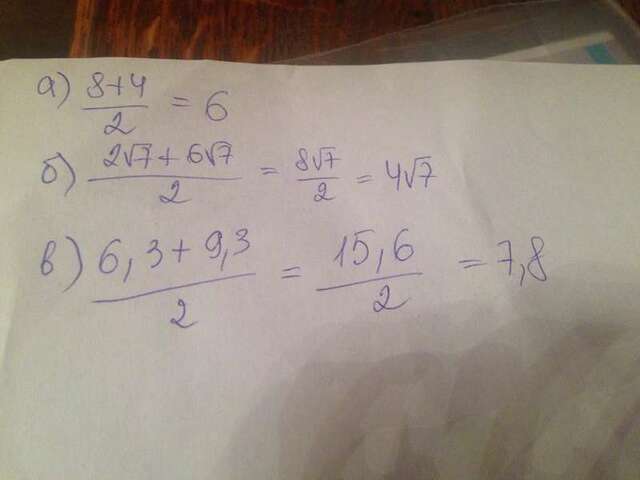 а) 8+4/2 = 6
б) 2√7 + 6√7/2 = 8√7/2 = 4√7
в) 6,3 + 9,3/2 = 15,6/2 = 7,8